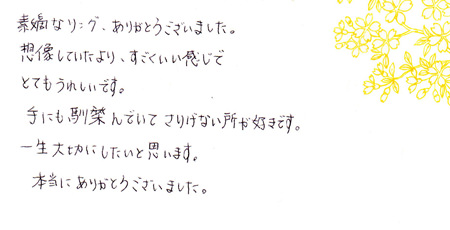 素敵なリング、ありがとうございました。
想像していたより、すごくいい感じで
とてもうれしいです。
手にも馴染んでいてさりげない所が好きです。
一生大切にしたいと思います。
本当にありがとうございました。